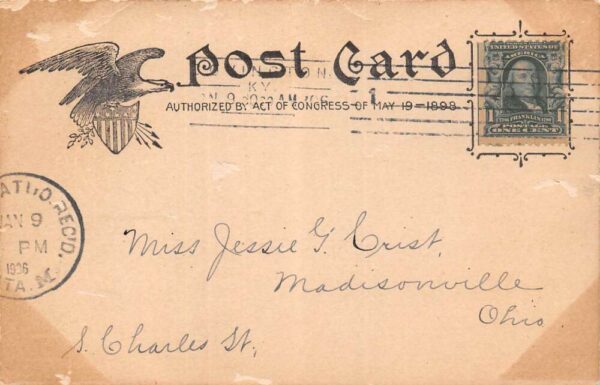 Post Card
AUTHORIZED BY ACT OF CONGRESS OF MAY 19-1898.
KY.
1
UNITED STATES OF
AMERICA
FRANKLIN
POSTAGE
1 ONE CENT 1
REC'D.
JAN 9
PM
1906
STA. M.
Miss Jessie G. Crist,
Madisonville
Ohio
S. Charles St,